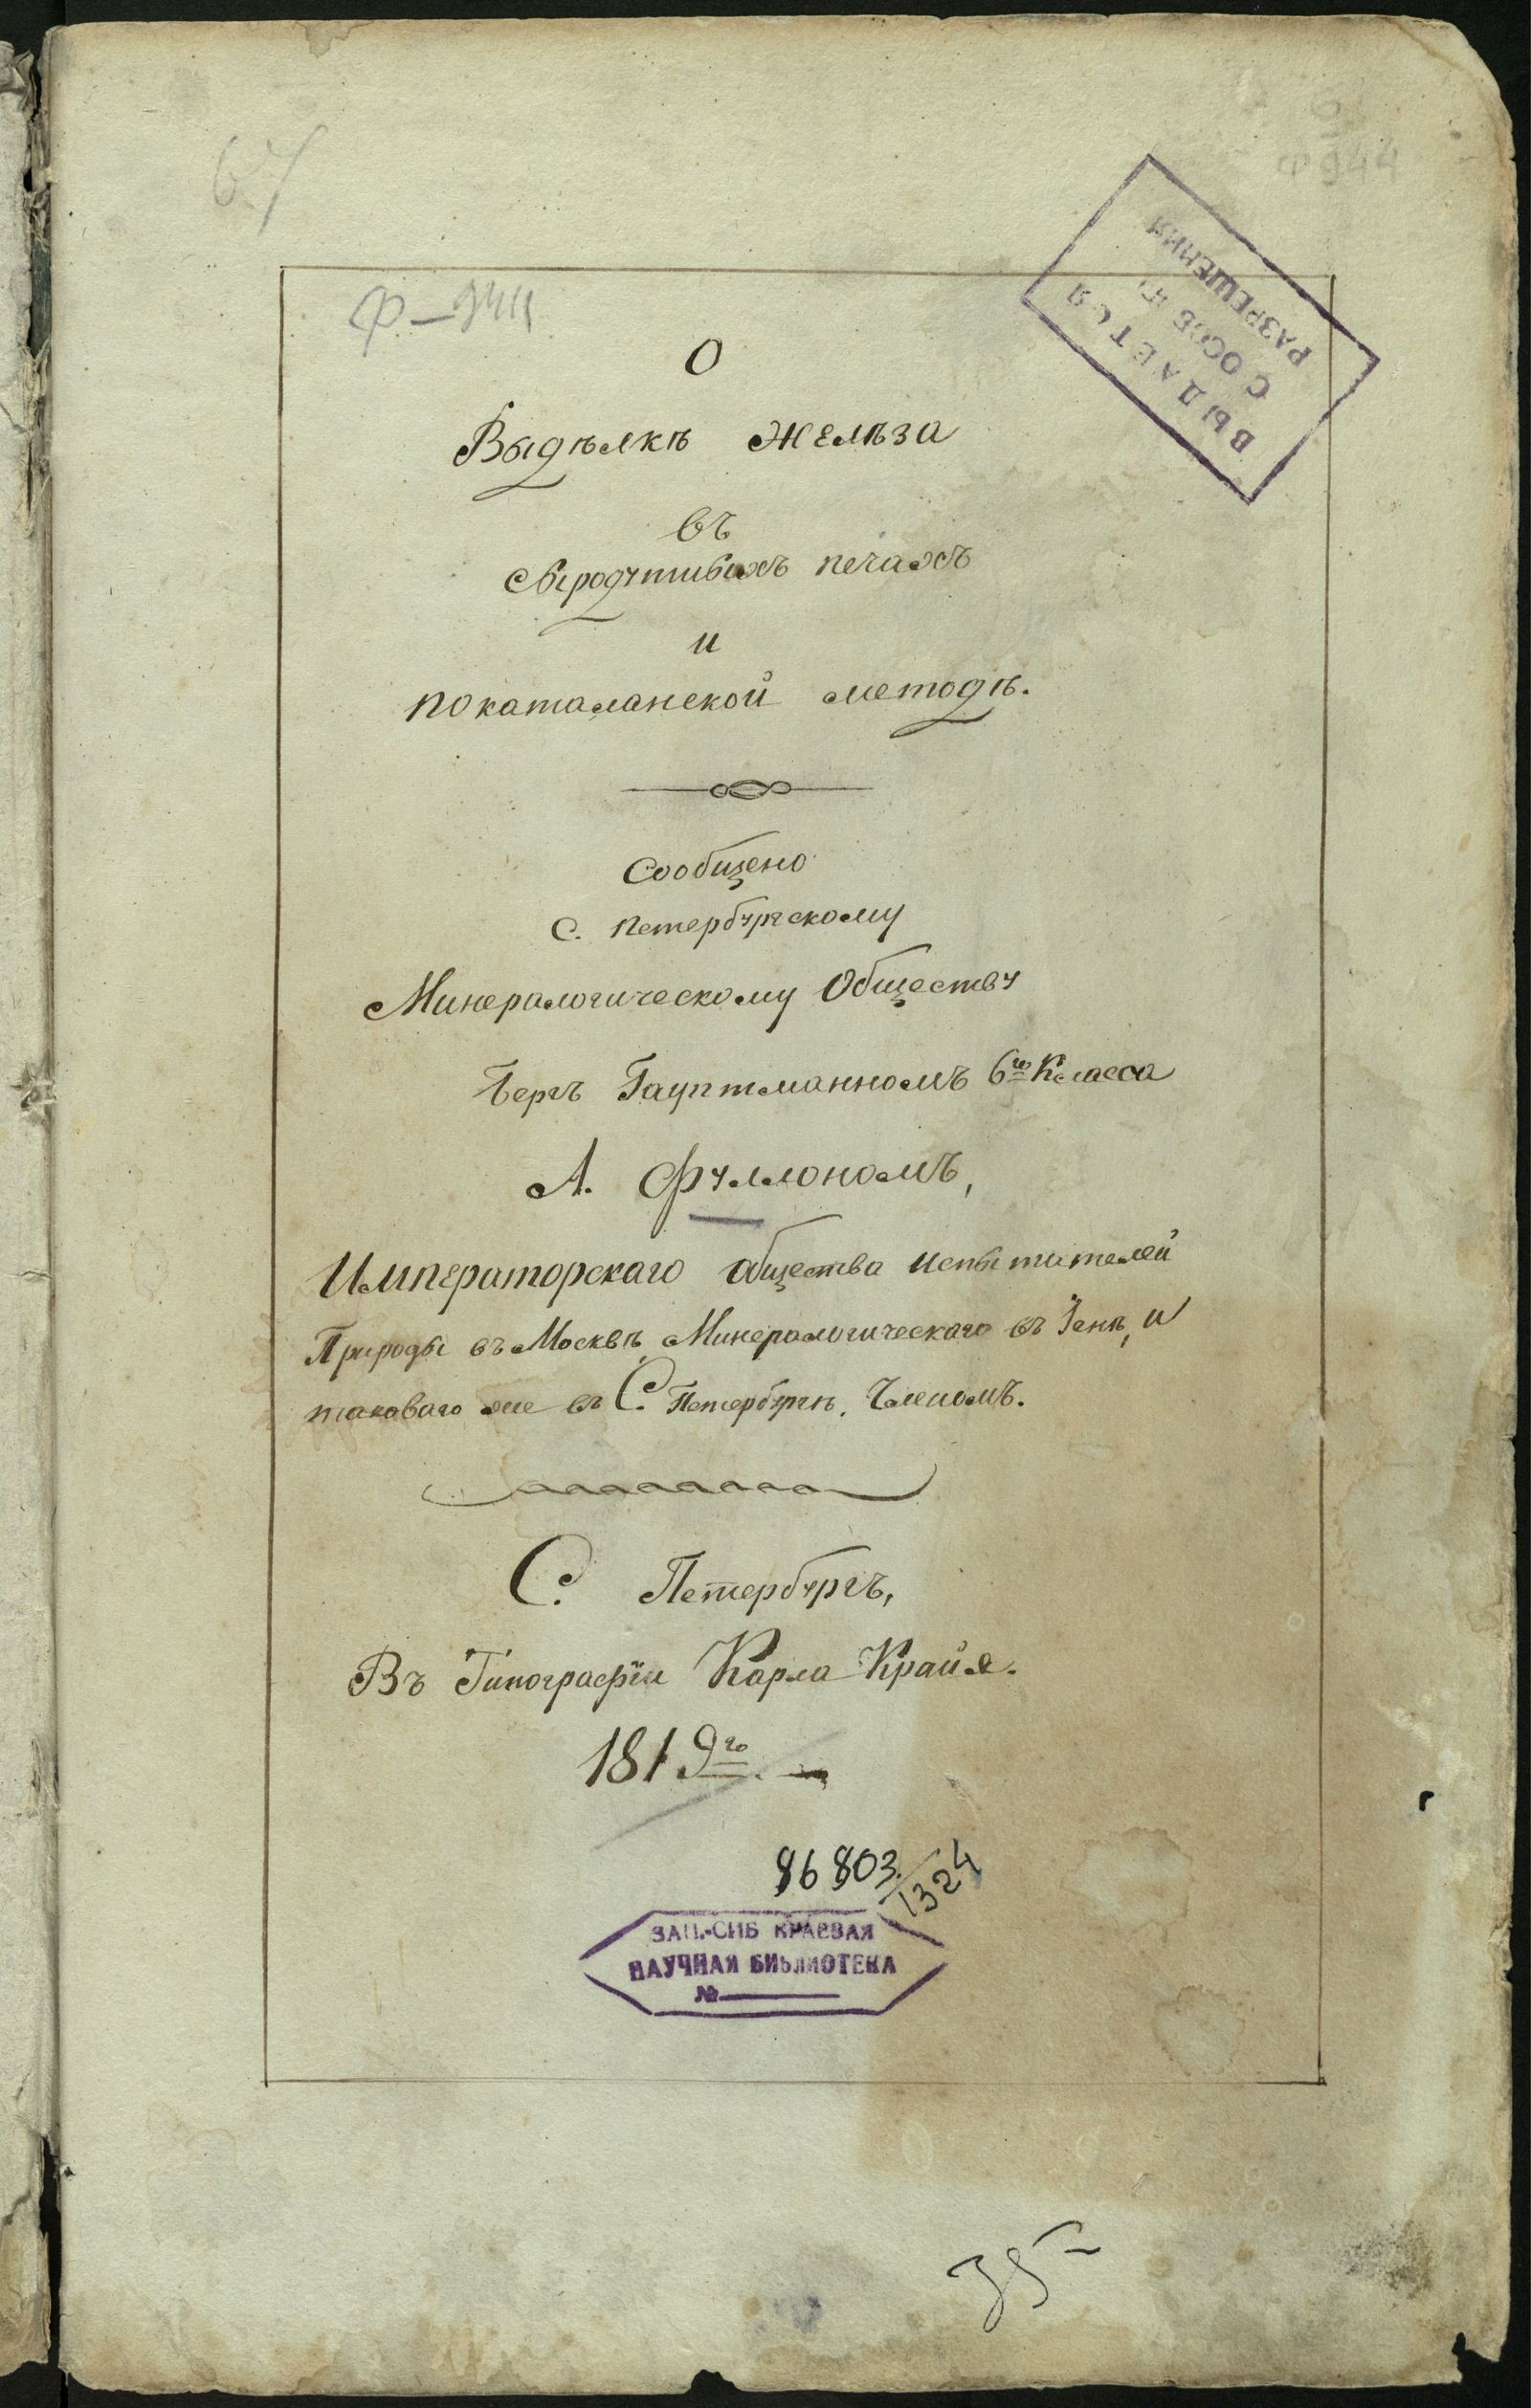 Ф 944
Ф-944
ВЫДАЕТСЯ
С ОСОБ
РАЗРЕШЕНИЯ
О
Выдѣлкѣ желѣза
въ
сыродутныхъ печахъ
и
покаталанской методѣ.
Сообщено
С. Петербургскому
Минералогическому Обществу
Бергъ Гауптманномъ 6го Класса
А. Фуллономъ,
Императорскаго общества испытателей
Природы въ Москвѣ, Минералогическаго въ Іенѣ, и
таковаго же въ С. Петербургѣ, Членомъ.
С. Петербургъ,
Въ Типографіи Карла Крайя.
1819го.
86803/1324
ЗАП.-СИБ КРАЕВАЯ
НАУЧНАЯ БИБЛИОТЕКА
№